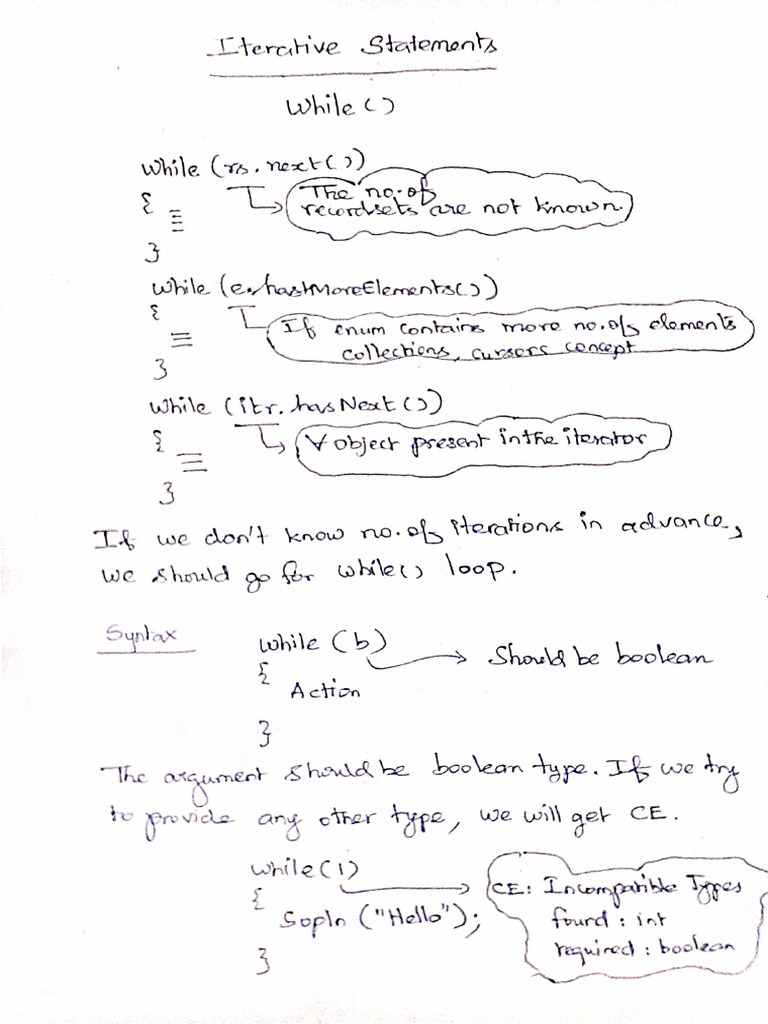 Iterative Statements
While()
While (rs.next())
{
The no.of
recordsets are not known.
}
While (e.hasMoreElements())
{
If enum contains more no.of elements
collections, cursors concept
}
While (itr.hasNext())
{
∀ object present in the iterator
}
If we don't know no.of iterations in advance,
we should go for while() loop.
Syntax
while (b)
Should be boolean
{
Action
}
The argument should be boolean type. If we try
to provide any other type, we will get CE.
while(1)
CE: Incompatible Types
{
found : int
Sopln ("Hello");
required : boolean
}